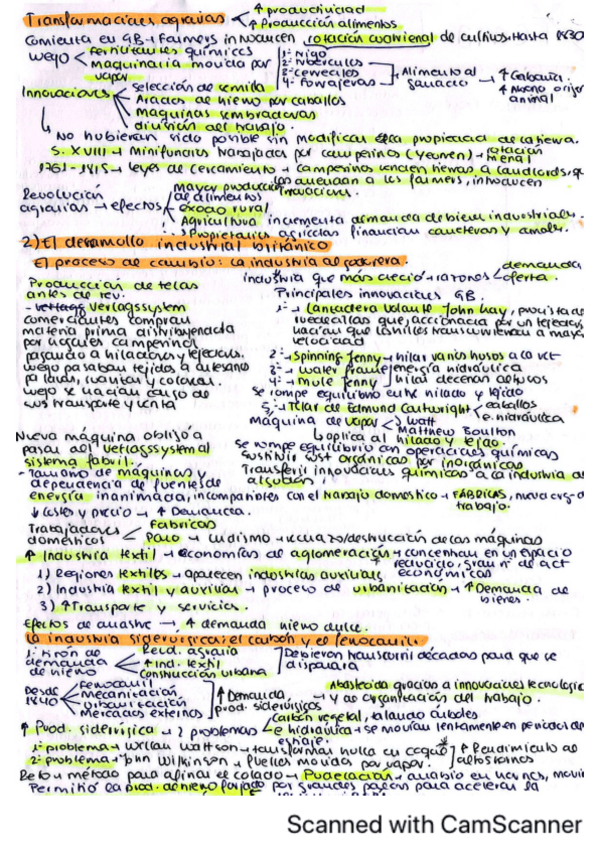 Transformaciones agrarias < ↑ productividad
↑ Producción alimentos
Comienza en GB → Farmers introducen rotación cuatrienal de cultivos. Hasta 1830
luego < fertilizantes químicos
maquinaria movida por vapor
1º trigo
2º tubérculos
3º cereales
4º forrajeras
Alimento al ganado → ↑ Cabaña
↑ Abono origen animal
Innovaciones
selección de semilla
Arados de hierro por caballos
Maquinas sembradoras
división del trabajo.
No hubieran sido posible sin modificar la propiedad de la tierra.
S. XVIII → Minifundios trabajados por campesinos (yeomen) → rotación trienal
1761-1815 → leyes de cercamiento → campesinos venden tierras a landlords, q
las arriendan a los farmers, introducen innovaciones.
Revolución agrarias → efectos
Mayor producción de alimentos
éxodo rural
Agricultura incrementa demanda de bien industriales.
Propietarios agrícolas financian carreteras y
2) El desarrollo industrial británico
El proceso de cambio: la industria algodonera.
industria que más creció → razones < demanda
oferta.
Producción de telas antes de rev.
- Verlagssystem
comerciantes compran
materia prima distribuyendola
por hogares campesinos
pasando a hiladores y tejedores.
luego pasaban tejidos a artesano
pa lavar, suavizar y colorear.
luego se hacían cargo de
sus transporte y venta
Principales innovaciones GB.
1º → Lanzadera volante John Kay, provista de
ruedecillas que, accionada por un tejedor,
hacían que los hilos transcurrieran a mayor
velocidad
2º → Spinning Jenny → hilar varios husos a la vez
3º → water frame → energía hidráulica
4º → mule jenny → hilar decenas de husos
Se rompe equilibrio entre hilado y tejido
5º → Telar de Edmund Cartwright < caballos
e. hidráulica
Máquina de vapor < Watt
Matthew Boulton
aplica al hilado y tejido.
Se rompe equilibrio con operaciones químicas
Sustituir sust orgánicas por inorgánicas
Transferir innovaciones químicas a la industria de
algodón.
Nueva máquina obligó a
pasar del Verlagssystem al
sistema fabril.
- Tamaño de máquinas y
dependencia de fuentes de
energía inanimada, incompatibles con el trabajo domestico → FÁBRICAS, nueva org. d
trabajo.
↓ costes y precio → ↑ Demanda.
Trabajadores domésticos < Fábricas
Paro → Ludismo → rechazo/destrucción de las máquinas
↑ Industria textil → economías de aglomeración → concentran en un espacio
reducido, gran nº de act económicas
1) Regiones textiles → aparecen industrias auxiliares
2) Industria textil y auxiliar → proceso de urbanización → ↑ Demanda de bienes.
3) ↑ Transporte y servicios.
Efectos de arrastre → ↑ demanda hierro
La industria siderúrgica: el carbón y el ferrocarril.
1º tirón de demanda de hierro
Revol. agraria
↑ Ind. textil
Construcción urbana
Debieron transcurrir décadas para que se
disparara
Desde 1840
Ferrocarril
Mecanización
Urbanización
Mercados externos
↑ Demanda prod. siderúrgicos
Abastecida gracias a innovaciones tecnologic
y de organización del trabajo.
↑ Prod. siderúrgica → 2 problemas < Carbón vegetal, talando árboles
e hidráulica → se movían lentamente en periodos de
estiaje.
1º problema → → transformar hulla en coque
2º problema → John Wilkinson → fuelles movidos por vapor.
↑ Rendimiento de altos hornos
método para afinar el colado → Pudelación →
Permitió la prod. de hierro forjado por grandes para acelerar la
Scanned with CamScanner